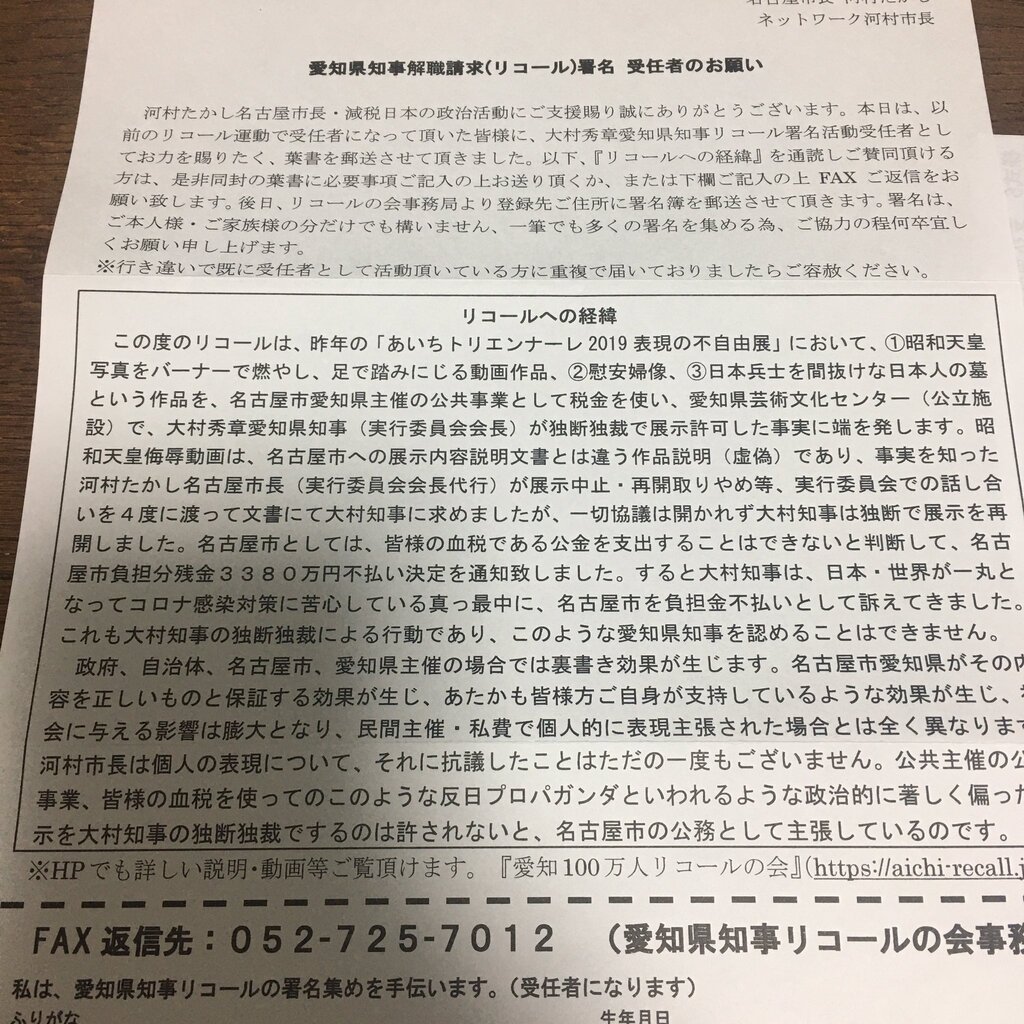 名古屋市長 河村たかし
ネットワーク河村市長
愛知県知事解職請求(リコール)署名 受任者のお願い
河村たかし名古屋市長・減税日本の政治活動にご支援賜り誠にありがとうございます。本日は、以
前のリコール運動で受任者になって頂いた皆様に、大村秀章愛知県知事リコール署名活動受任者とし
てお力を賜りたく、葉書を郵送させて頂きました。以下、『リコールへの経緯』を通読しご賛同頂ける
方は、是非同封の葉書に必要事項ご記入の上お送り頂くか、または下欄ご記入の上 FAX ご返信をお
願い致します。後日、リコールの会事務局より登録先ご住所に署名簿を郵送させて頂きます。署名は、
ご本人様・ご家族様の分だけでも構いません、一筆でも多くの署名を集める為、ご協力の程何卒宜し
くお願い申し上げます。
※行き違いで既に受任者として活動頂いている方に重複で届いておりましたらご容赦ください。
リコールへの経緯
この度のリコールは、昨年の「あいちトリエンナーレ2019 表現の不自由展」において、①昭和天皇
写真をバーナーで燃やし、足で踏みにじる動画作品、②慰安婦像、③日本兵士を間抜けな日本人の墓
という作品を、名古屋市愛知県主催の公共事業として税金を使い、愛知県芸術文化センター（公立施
設）で、大村秀章愛知県知事（実行委員会会長）が独断独裁で展示許可した事実に端を発します。昭
和天皇侮辱動画は、名古屋市への展示内容説明文書とは違う作品説明（虚偽）であり、事実を知った
河村たかし名古屋市長（実行委員会会長代行）が展示中止・再開取りやめ等、実行委員会での話し合
いを４度に渡って文書にて大村知事に求めましたが、一切協議は開かれず大村知事は独断で展示を再
開しました。名古屋市としては、皆様の血税である公金を支出することはできないと判断して、名古
屋市負担分残金３３８０万円不払い決定を通知致しました。すると大村知事は、日本・世界が一丸と
なってコロナ感染対策に苦心している真っ最中に、名古屋市を負担金不払いとして訴えてきました。
これも大村知事の独断独裁による行動であり、このような愛知県知事を認めることはできません。
政府、自治体、名古屋市、愛知県主催の場合では裏書き効果が生じます。名古屋市愛知県がその内
容を正しいものと保証する効果が生じ、あたかも皆様方ご自身が支持しているような効果が生じ、
会に与える影響は膨大となり、民間主催・私費で個人的に表現主張された場合とは全く異なります
河村市長は個人の表現について、それに抗議したことはただの一度もございません。公共主催の公
事業、皆様の血税を使ってのこのような反日プロパガンダといわれるような政治的に著しく偏った
示を大村知事の独断独裁でするのは許されないと、名古屋市の公務として主張しているのです。
※HPでも詳しい説明・動画等ご覧頂けます。『愛知100万人リコールの会』(https://aichi-recall.j
FAX 返信先：０５２-７２５-７０１２ （愛知県知事リコールの会事務
私は、愛知県知事リコールの署名集めを手伝います。（受任者になります）
ふりがな 生年月日